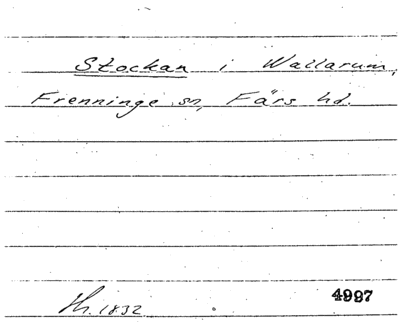 Stockan i Wallarum,
Frenninge sn, Färs hd.
Hr. 1832
4997